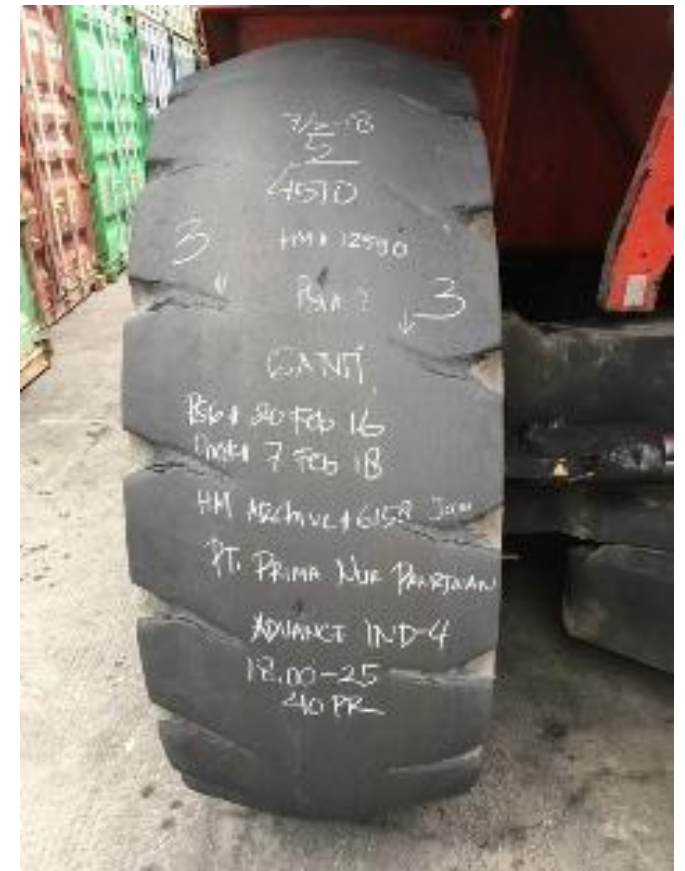 7/2-18
5
4510
3 HM# 12590
PSIA ?
3
GANTI
PSG# 20 Feb 16
7 Feb 18
HM Archive # 6159 Jam
PT. PRIMA NUR PANJTUAN
ADVANCE IND-4
18.00-25
40 PR